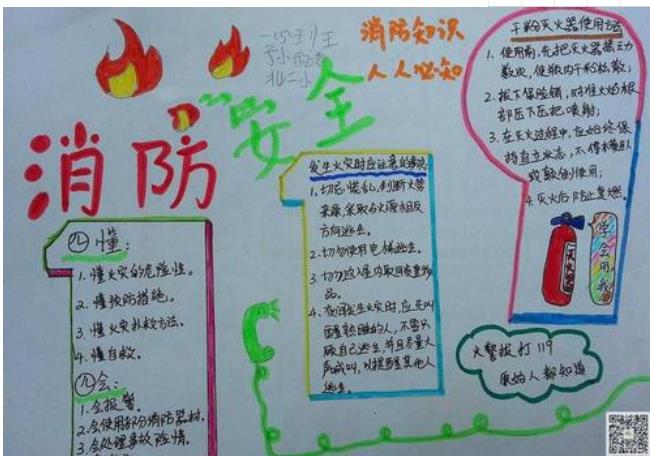 消防安全
消防知识
人人必知
四懂:
1. 懂火灾的危险性。
2. 懂预防措施。
3. 懂火灾扑救方法。
4. 懂自救。
四会:
1. 会报警。
2. 会使用部分消防器材。
3. 会处理事故险情。
发生火灾时应注意的事项
1. 切忌慌乱,判断火势
来源,采取与火源相反
方向逃生。
2. 切勿使用电梯逃生。
3. 切勿返入屋内取回贵重物
品。
4. 夜间发生火灾时,应先叫
醒熟睡的人,不要只
顾自己逃生,并且尽量大
声喊叫,以提醒其他人
逃生。
干粉灭火器使用方法
1. 使用前,先把灭火器摇动
数次,使瓶内干粉松散;
2. 拔下保险销,对准火焰根
部压下压把喷射;
3. 在灭火过程中,应始终保
持直立状态,不得横卧
或颠倒使用;
4. 灭火后防止复燃。
学会用我
火警拨打119
原始人都知道